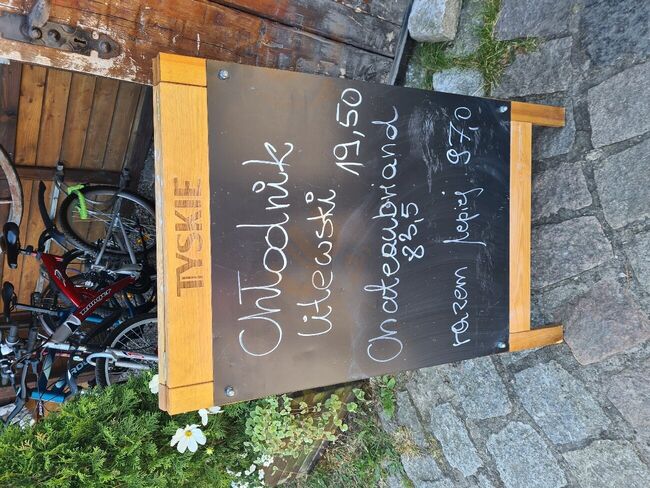 TYSKIE
Chłodnik
litewski 19,50
Chateaubriand
83,5
razem lepiej 97,0